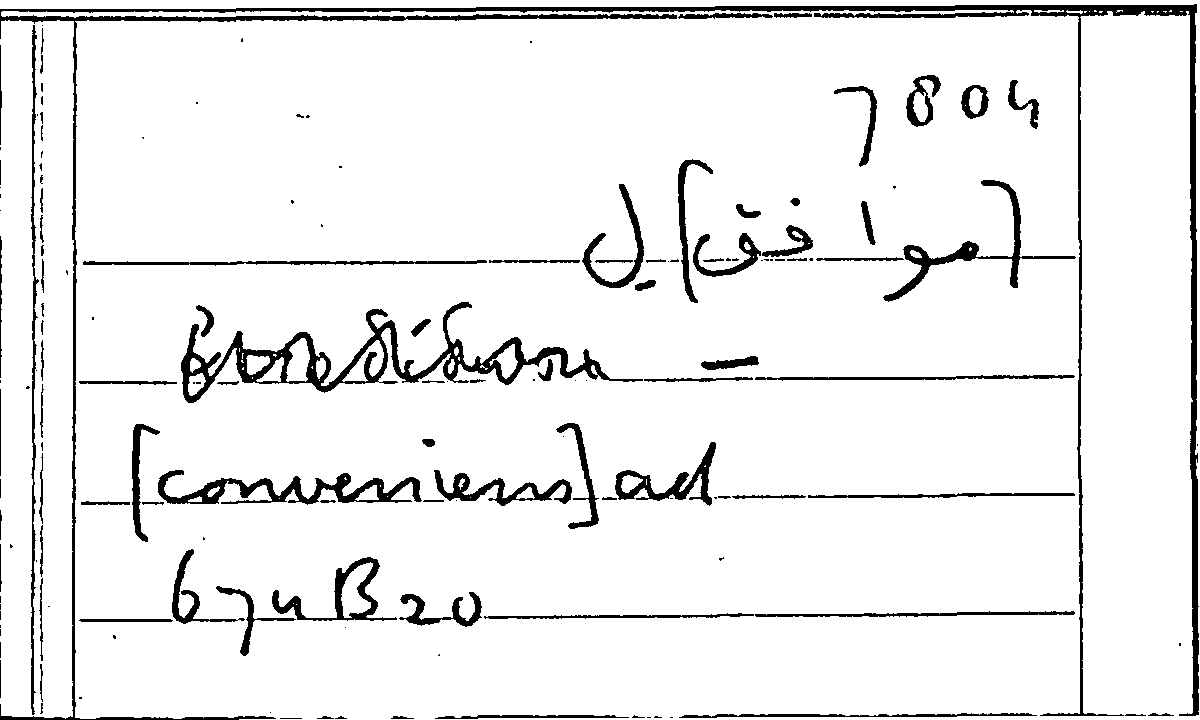 7804
[موافق] ل
—
[conveniens] ad
674B20